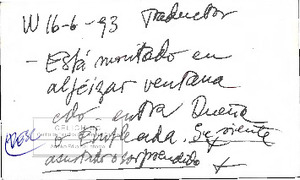 W 16-6-93 Traductor
- Está montado en
alfeizar ventana
cdo entra Dueña
o Empleada. Se siente
asustado o sorprendido